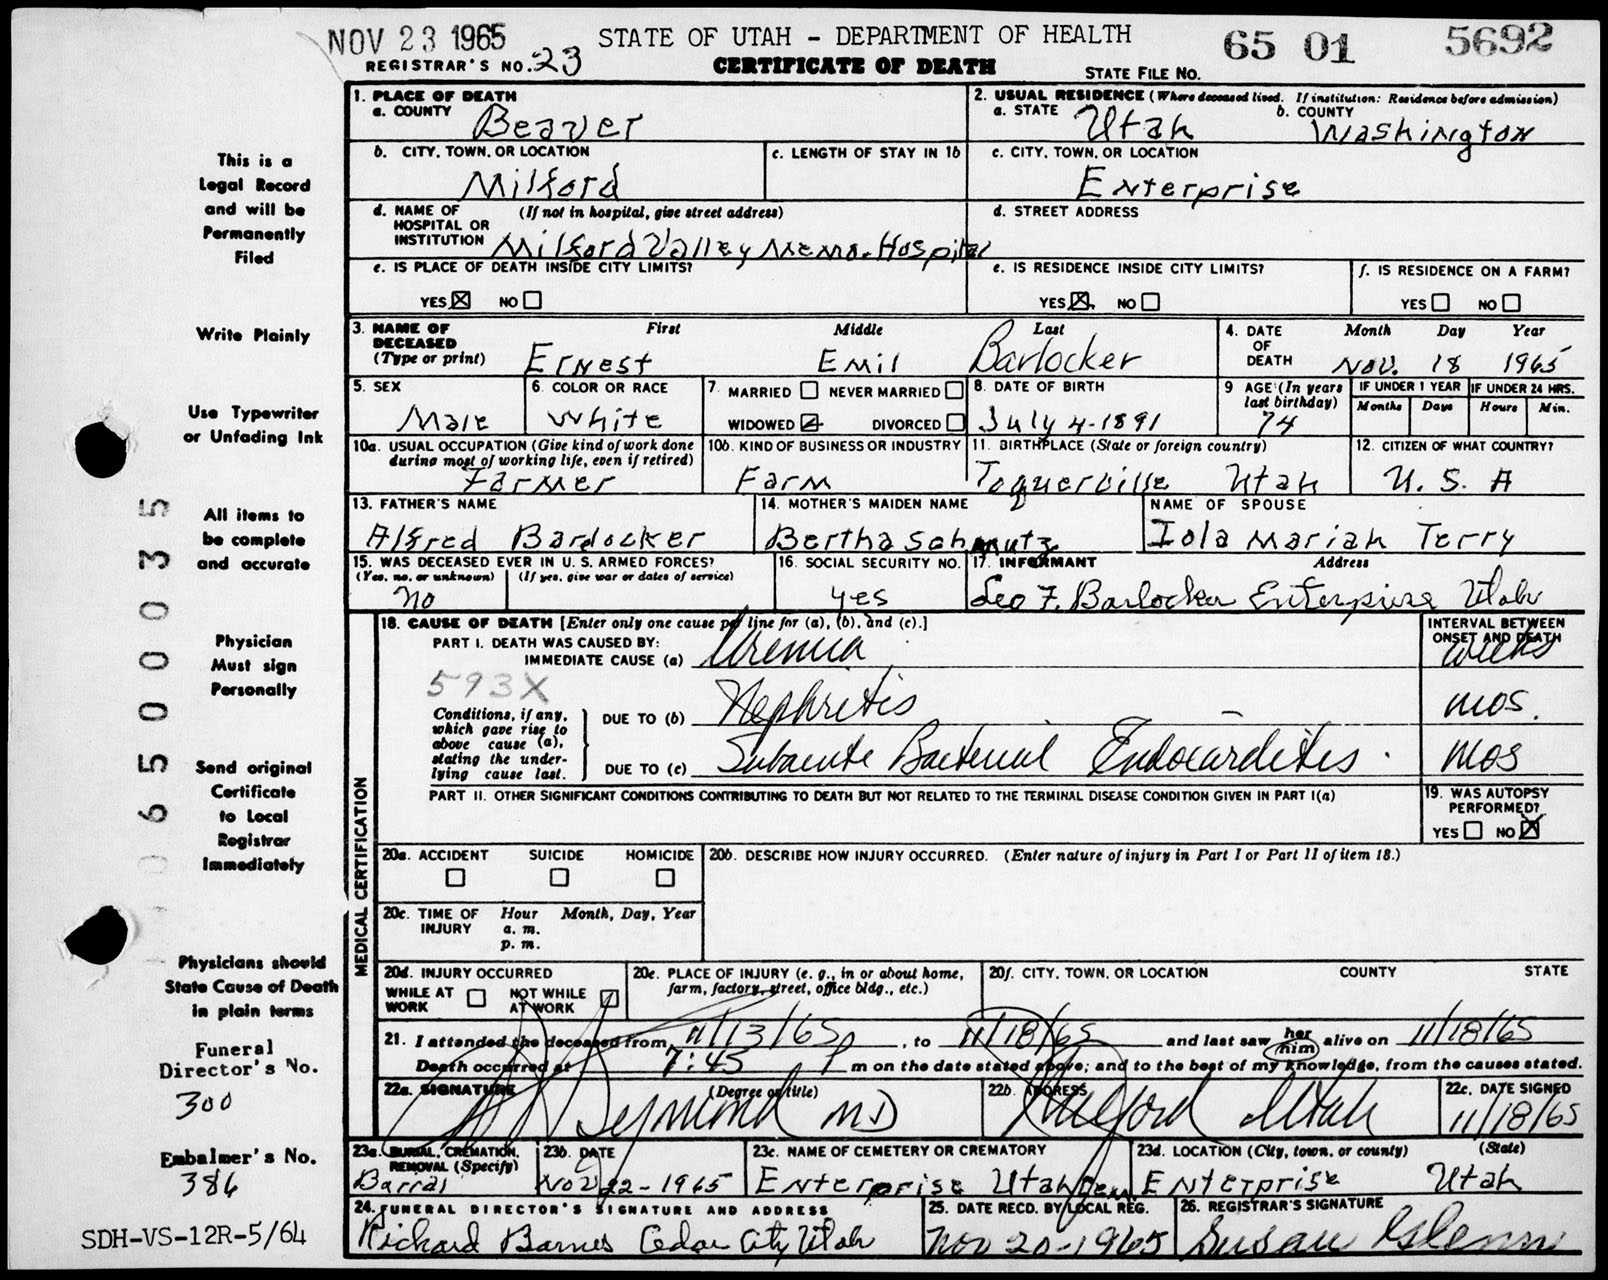 NOV 23 1965 STATE OF UTAH - DEPARTMENT OF HEALTH 65 01 5692
REGISTRAR'S NO. 23 CERTIFICATE OF DEATH STATE FILE NO.
This is a
Legal Record
and will be
Permanently
Filed
Write Plainly
Use Typewriter
or Unfading Ink
All items to
be complete
and accurate
Physician
Must sign
Personally
Send original
Certificate
to Local
Registrar
Immediately
Physicians should
State Cause of Death
in plain terms
Funeral
Director's No.
300
Embalmer's No.
386
SDH-VS-12R-5/64
0650035
1. PLACE OF DEATH
a. COUNTY Beaver
2. USUAL RESIDENCE (Where deceased lived. If institution: Residence before admission)
a. STATE Utah b. COUNTY Washington
b. CITY, TOWN, OR LOCATION
Milford
c. LENGTH OF STAY IN 1b
c. CITY, TOWN, OR LOCATION
Enterprise
d. NAME OF (If not in hospital, give street address)
HOSPITAL OR
INSTITUTION Milford Valley Memo. Hospital
d. STREET ADDRESS
e. IS PLACE OF DEATH INSIDE CITY LIMITS?
YES ☒ NO ☐
e. IS RESIDENCE INSIDE CITY LIMITS?
YES ☒ NO ☐
f. IS RESIDENCE ON A FARM?
YES ☐ NO ☐
3. NAME OF First Middle Last
DECEASED
(Type or print) Ernest Emil Barlocker
4. DATE Month Day Year
OF
DEATH Nov. 18 1965
5. SEX
Male
6. COLOR OR RACE
White
7. MARRIED ☐ NEVER MARRIED ☐
WIDOWED ☒ DIVORCED ☐
8. DATE OF BIRTH
July 4-1891
9 AGE (In years
last birthday)
74
IF UNDER 1 YEAR IF UNDER 24 HRS.
Months Days Hours Min.
10a. USUAL OCCUPATION (Give kind of work done
during most of working life, even if retired)
Farmer
10b. KIND OF BUSINESS OR INDUSTRY
Farm
11. BIRTHPLACE (State or foreign country)
Toquerville Utah
12. CITIZEN OF WHAT COUNTRY?
U. S. A
13. FATHER'S NAME
Alfred Bardocker
14. MOTHER'S MAIDEN NAME
Bertha Schmutz
NAME OF SPOUSE
Iola Mariah Terry
15. WAS DECEASED EVER IN U. S. ARMED FORCES?
(Yes, no, or unknown) (If yes, give war or dates of service)
No
16. SOCIAL SECURITY NO.
yes
17. INFORMANT Address
Leo F. Barlocker Enterprise Utah
MEDICAL CERTIFICATION
18. CAUSE OF DEATH [Enter only one cause per line for (a), (b), and (c).]
INTERVAL BETWEEN
ONSET AND DEATH
PART I. DEATH WAS CAUSED BY:
IMMEDIATE CAUSE (a) Uremia weeks
593X
Conditions, if any,
which gave rise to
above cause (a),
stating the under-
lying cause last.
DUE TO (b) Nephritis mos.
DUE TO (c) Subacute Bacterial Endocarditis. mos
PART II. OTHER SIGNIFICANT CONDITIONS CONTRIBUTING TO DEATH BUT NOT RELATED TO THE TERMINAL DISEASE CONDITION GIVEN IN PART I(a)
19. WAS AUTOPSY
PERFORMED?
YES ☐ NO ☒
20a. ACCIDENT SUICIDE HOMICIDE
☐ ☐ ☐
20b. DESCRIBE HOW INJURY OCCURRED. (Enter nature of injury in Part I or Part II of item 18.)
20c. TIME OF Hour Month, Day, Year
INJURY a. m.
p. m.
20d. INJURY OCCURRED
WHILE AT ☐ NOT WHILE ☐
WORK AT WORK
20e. PLACE OF INJURY (e. g., in or about home,
farm, factory, street, office bldg., etc.)
20f. CITY, TOWN, OR LOCATION COUNTY STATE
21. I attended the deceased from 11/13/65, to 11/18/65 and last saw her him alive on 11/18/65
Death occurred at 7:45 P m on the date stated above; and to the best of my knowledge, from the causes stated.
22a. SIGNATURE (Degree or title)
Symond MD
22b. ADDRESS
Milford Utah
22c. DATE SIGNED
11/18/65
23a. BURIAL, CREMATION,
REMOVAL (Specify)
Barral
23b. DATE
Nov 22-1965
23c. NAME OF CEMETERY OR CREMATORY
Enterprise Utah Cem
23d. LOCATION (City, town, or county) (State)
Enterprise Utah
24. FUNERAL DIRECTOR'S SIGNATURE AND ADDRESS
Richard Barnes Cedar City Utah
25. DATE RECD. BY LOCAL REG.
Nov 20-1965
26. REGISTRAR'S SIGNATURE
Susan Glenn